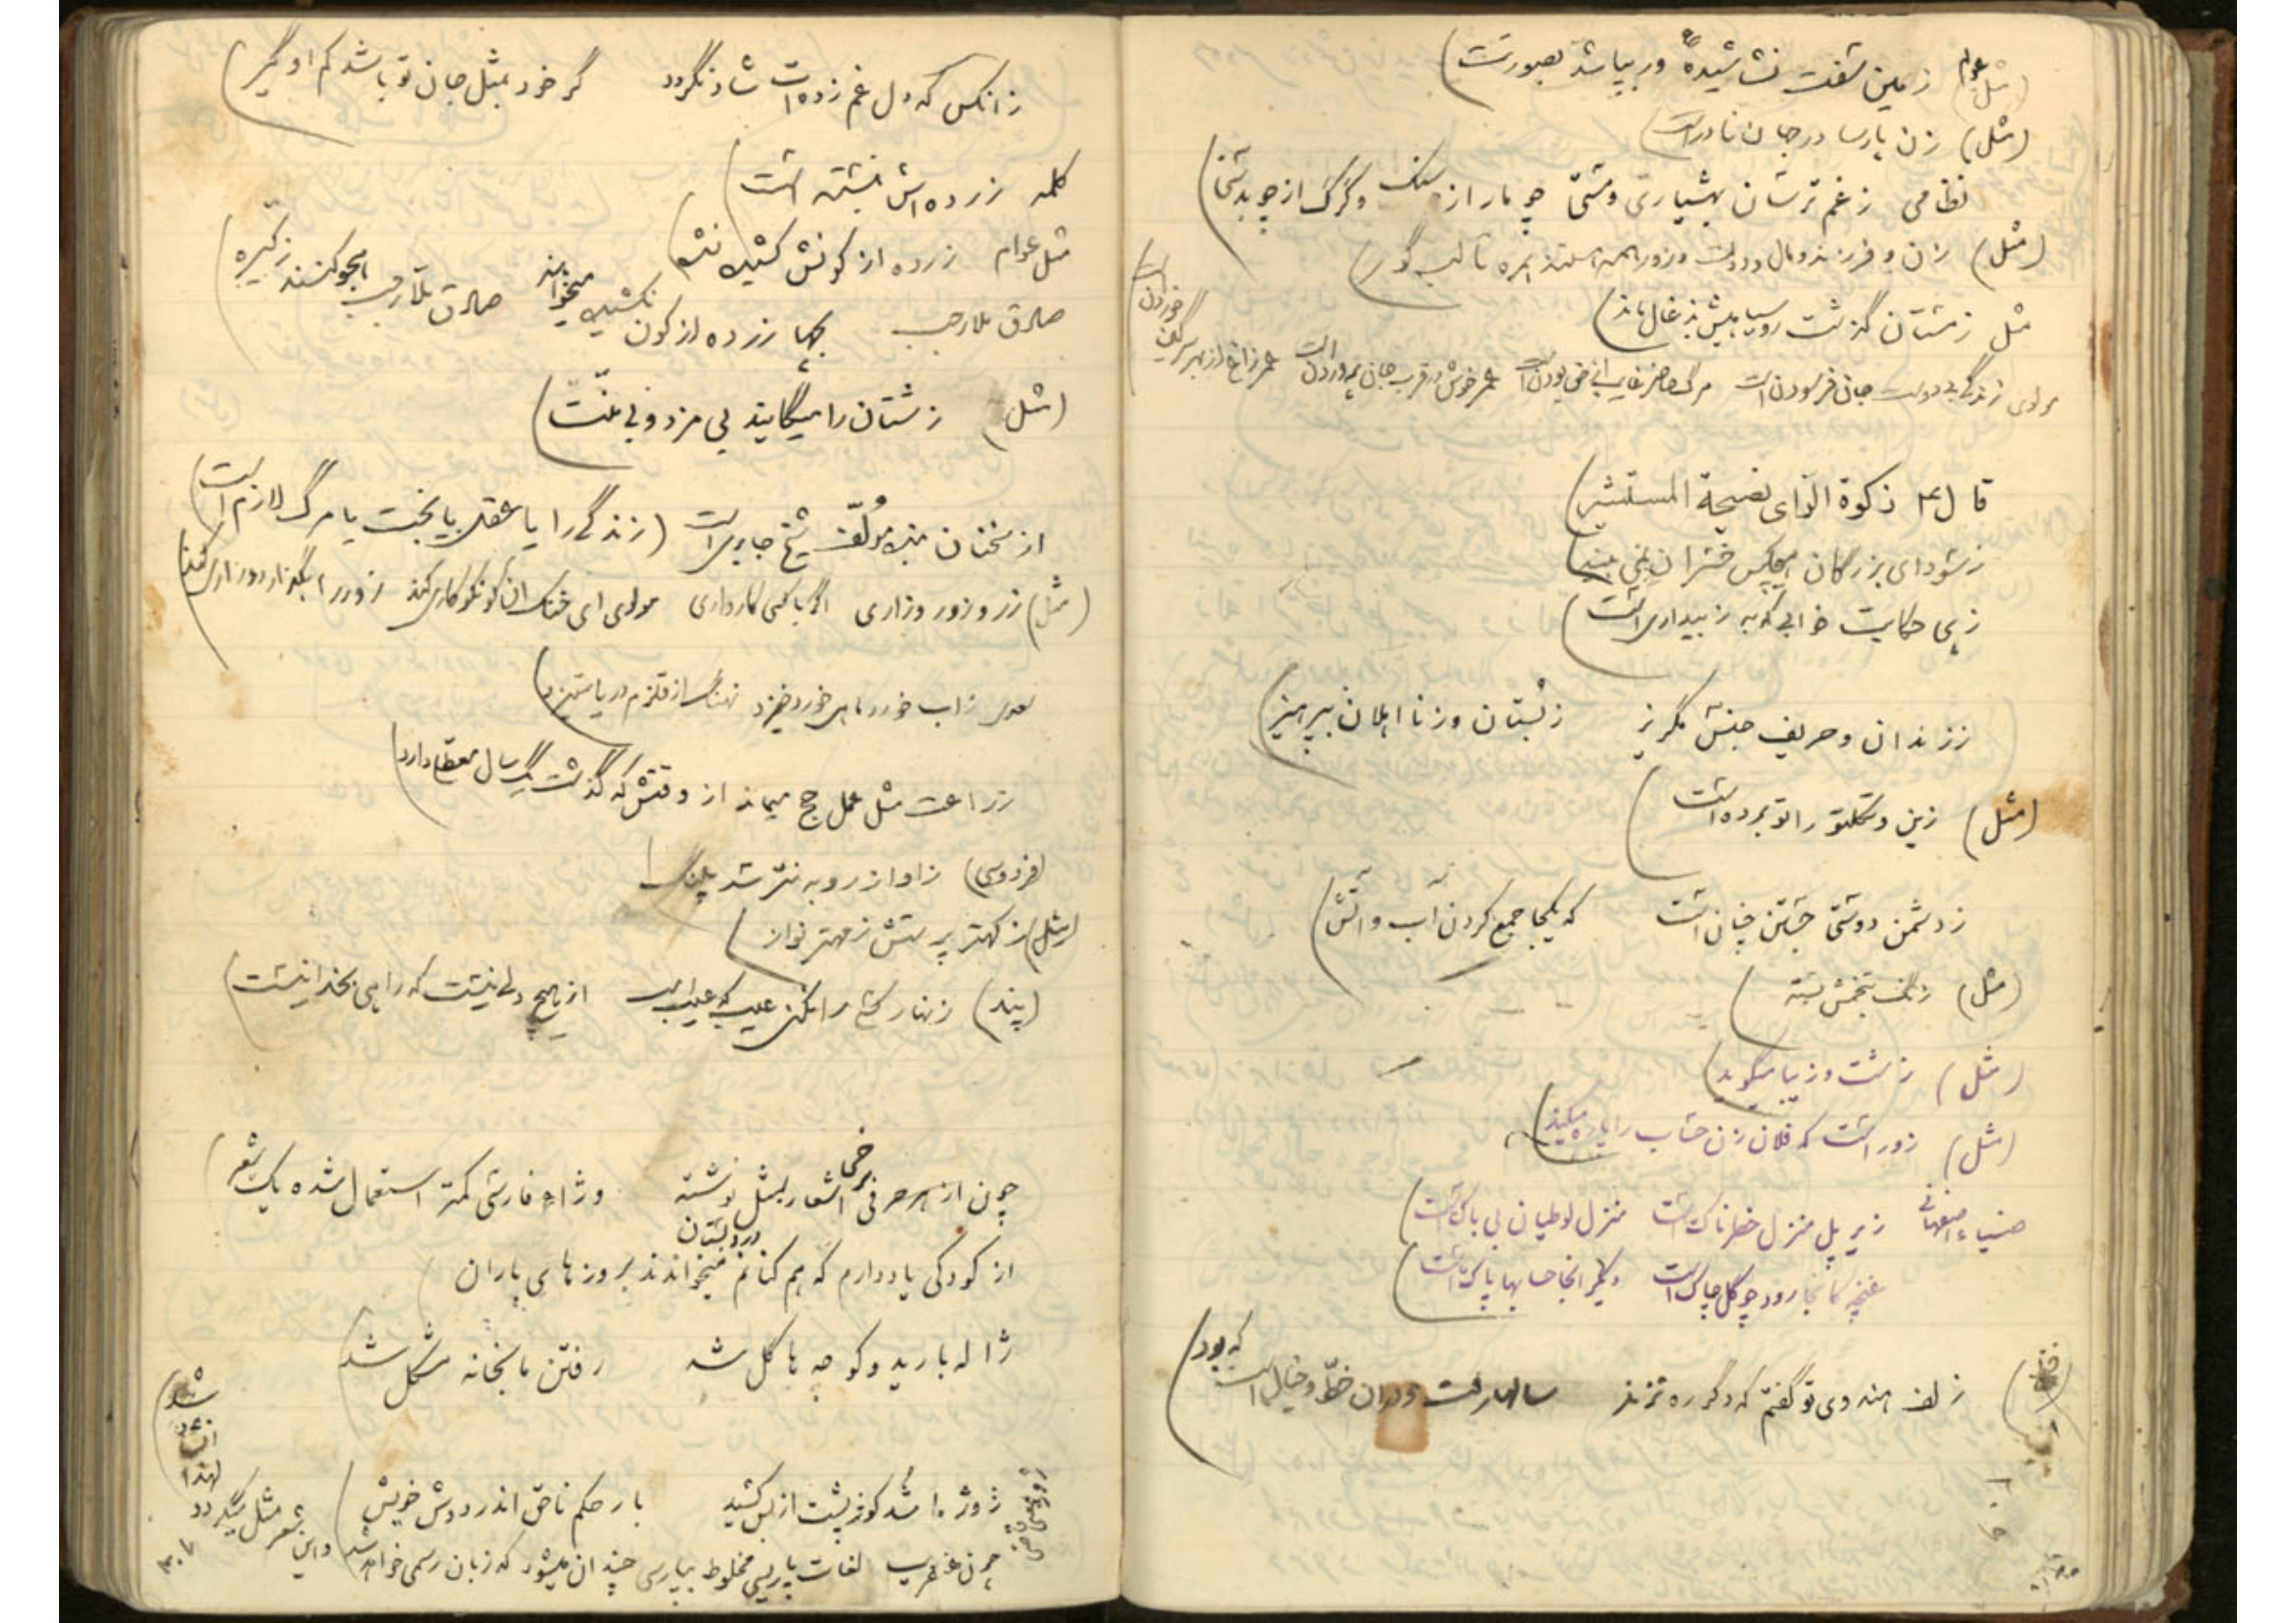 (مثل عوام) زمین سفت نشاشیده ور بپاشد بصورتت
(مثل) زن پارسا در جهان نادر است
نظامی ز غم ترسان بهشیاری و مستی چو مار از سنگ و گرگ از چوبدستی
(مثل) زن و فرزند و مال و دولت و زور همه هستند همره تا لب گور
مثل زمستان گذشت روسیاهیش بذغال ماند
مولوی زندگی بیدوست جان فرسودن است مرگ حاضر غایب از حق بودن است عمر خوش در قرب جان پروردن است عمر زاغ از بهر سرگین خوردن است
قال ع زکوة الرّای نصیحة المستشیر
ز سودای بزرگان هیچکس خسران نمی بیند
زهی حکایت خوابی که به ز بیداری است
ز زندان و حریف جنس مگریز ز بستان وز نااهلان بپرهیز
(مثل) زین و تکلتو را تو برده است
ز دشمن دوستی جستن چنان است که یکجا جمع کردن آب و آتش
(مثل) زنگ بتخمش بسته
(مثل) زشت و زیبا میگوید
(مثل) زور است که فلان زن حساب را پاره میکند
ضیاء اصفهانی زیر پل منزل خطرناک است منزل لوطیان بی باک است
غنچه کانجا رود چو گل چاک است دیگر انجا حسابها پاک است
ز لف هندوی تو گفتم که دگر ره نزند سالها رفت و بدان خطّ و خیال است که بود
زانکس که دل غم زده ات شاد نگردد گر خود بمثل جان تو باشد کم او گیر
کلمه زرده اش نبسته است
مثل عوام زرده از کونش کشیده نشده
صادق ملارجب بچها زرده از کون نکشیده میخواند صادق ملّارجب هجو کنند
(مثل) زشتان را میگایند بی مزد و بی منّت
از سخنان بنده مؤلّف شیخ جابری است (زندگی را یا عقل یا بخت یا مرگ لازم است)
(مثل) زر و زور و زاری اگر با کسی کار داری مولوی ای خنک آن کو نکوکاری کند زور را بگذارد و زاری کند
سعدی ز آب خورد ماهی خورد خیزد نهنگ از قلزم دریا ستیزد
زراعت مثل عمل حج میماند از وقتش که گذشت یکسال معطلی دارد
(فردوسی) ز اواز روبه نترسد پلنگ
(مثل) ز کهتر پرستش ز مهتر نواز
(پند) زنهار کسی را مکن عیب که عیب است از هیچ دلی نیست که راهی بخدا نیست
چون از هر حرفی برخی اشعار بمثل نوشته و ژاء فارسی کمتر استعمال شده یک شعر
از کودکی یاد دارم که هم کنانم در دبستان میخواندند بروزهای باران
ژاله بارید و کوچه ها گل شد رفتن ما بخانه مشکل شد
ژوژه ا شد کوژ پشت از بس کشید بار حکم ناحق اندر دوش خویش
چون عنقریب لغات پارسی مخلوط بپارسی چندان میشود که زبان رسمی خواهد شد و این شعر مثل میگردد
لهذا انشاد شد